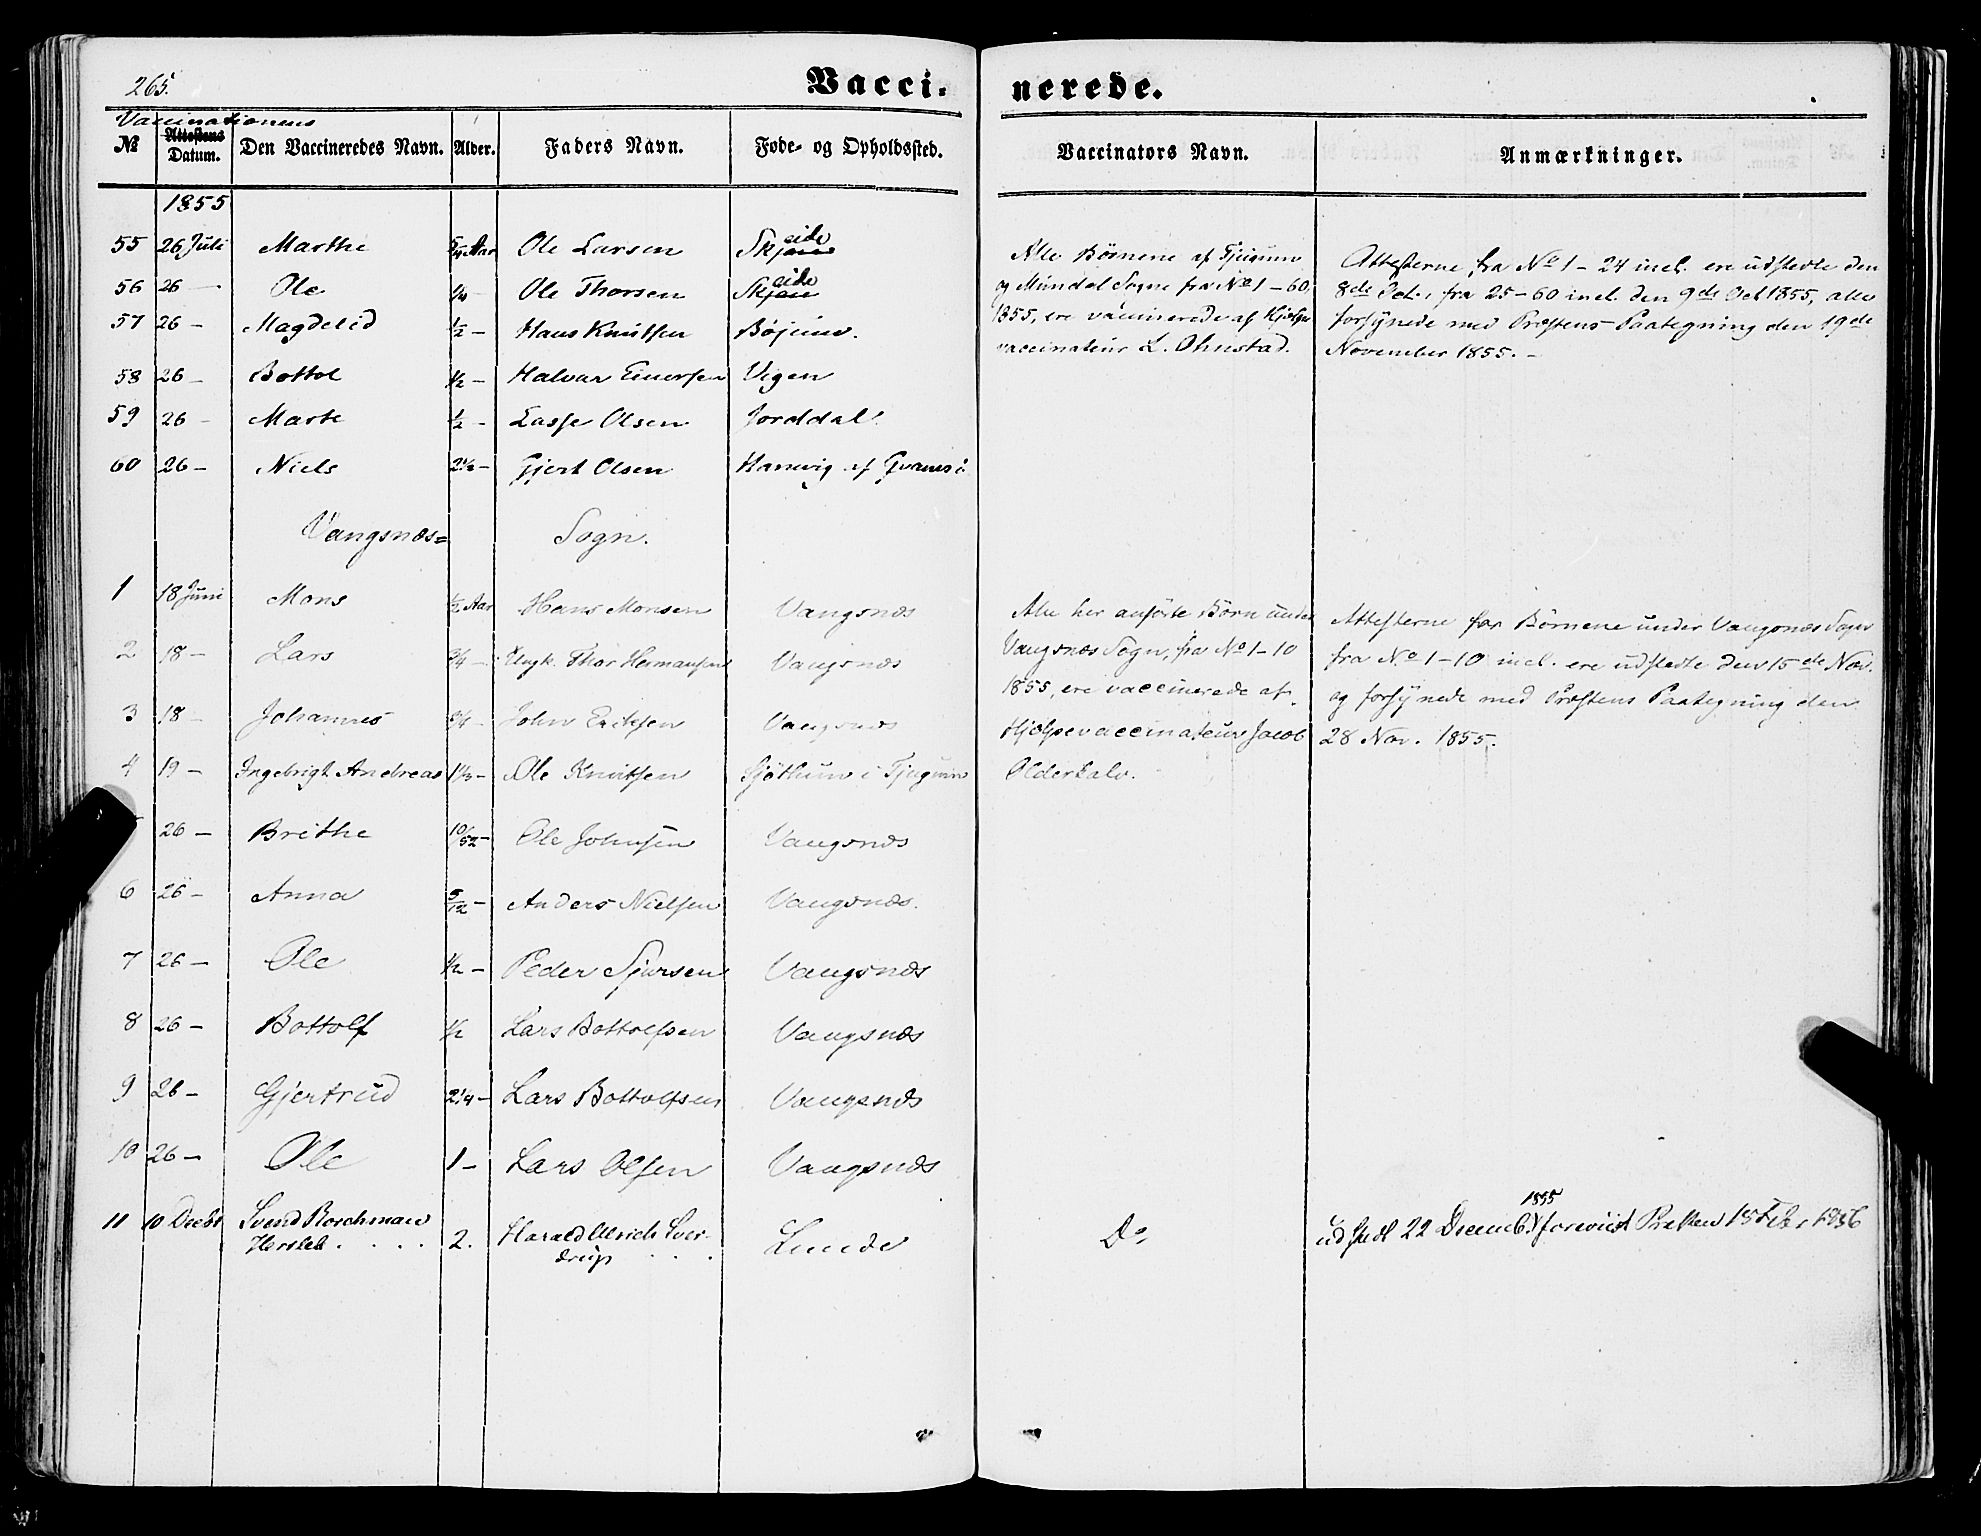 265.
Vacci-
nerede.
Vaccinationens
№ Attestens Datum. Den Vaccineredes Navn. Alder. Faders Navn. Føde- og Opholdssted. Vaccinators Navn. Anmærkninger.
1855
55 26 Juli Marthe Aar Ole Larsen Skjeide
56 26 — Ole Ole Thorsen Skjeide
57 26 — Magdelid ½ — Hans Knutsen
58 26 — Bottol ½ — Halvar Vigen
59 26 — Marte ½ — Lasse Olsen Jorddal
60 26 — Niels 2½ — Gjert Olsen Hamvig af
Alle Børnene af Tjugum
og Mundal Sogne fra No 1 – 60
1855, ere vaccinerede af Hjelpe
vaccinateur L. Ohnstad.
Attesterne fra No 1 – 24 incl. ere udstedte den
8de Oct., fra 25 – 60 incl. den 9de Oct 1855, alle
forsynede med Præstens Paategning den 19de
November 1855. –
Vangsnæs= Sogn.
1 18 Juni Mons ½ Aar Hans Monsen Vangsnæs
2 18 — Lars ¾ — Ungk. Thor Hermansen Vangsnæs
3 18 — Johannes ¾ — John Eriksen Vangsnæs
4 19 — Ingebrigt Andreas 1⅓ — Ole Knutsen i Tjugum
26 — Brithe 10/52 — Ole Johnsen Vangsnæs
6 26 — Anna 5/12 — Anders Nielsen Vangsnæs.
7 26 — Ole ½ — Peder Sjursen Vangsnæs
8 26 — Bottolf ½ Lars Bottolfsen Vangsnæs
9 26 — Gjertrud 2¼ — Lars Bottolfsen Vangsnæs
10 26 — Ole 1 — Lars Olsen Vangsnæs
11 10 Decbr Svend Borchman
Hersleb . . . . 2. Harald Ulrich Sver-
drup . . . Lunde Do
Alle her anførte Børn under
Vangsnæs Sogn, fra No 1 – 10
1855, ere vaccinerede af
Hjelpevaccinateur Jacob
Olderkalv.
Attesterne for Børnene under Vangsnæs Sogn
fra No 1 – 10 incl. ere udstedte den 15de Nov.
og forsynede med Præstens Paategning den
28 Nov. 1855.
1855
udstedt 22 Decemb. foreviist Præsten 15 Febr 1856